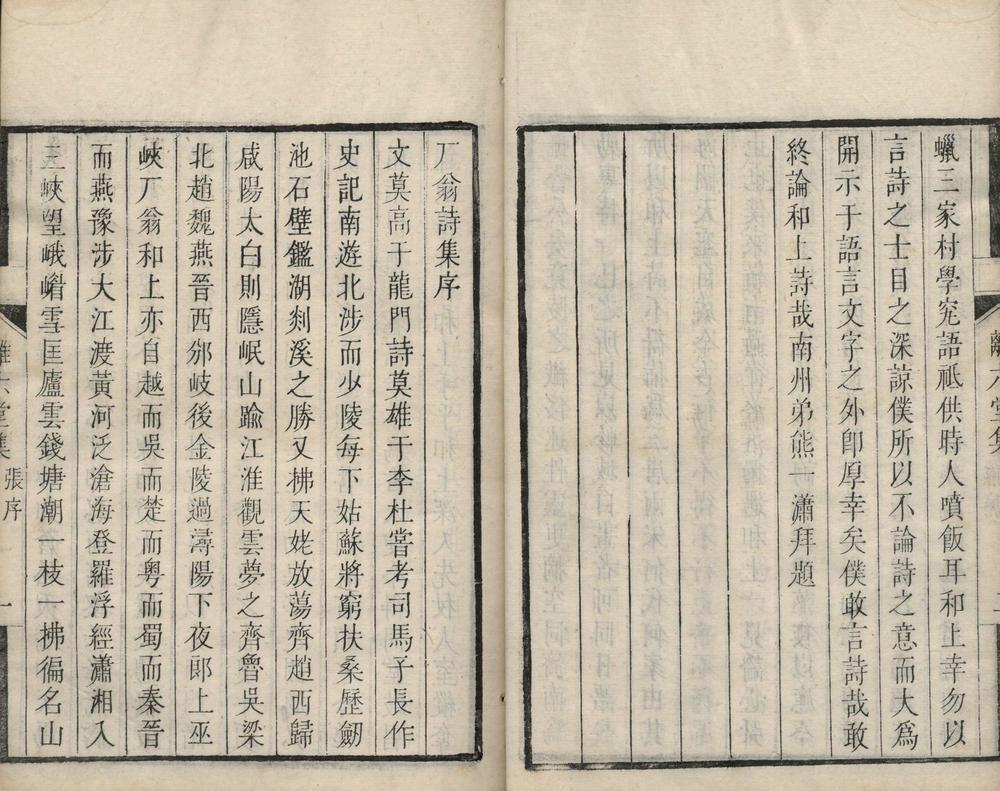 蠟三家村學究語祇供時人噴飯耳和上幸勿以
言詩之士目之深諒僕所以不論詩之意而大爲
開示于語言文字之外卽厚幸矣僕敢言詩哉敢
終論和上詩哉南州弟熊一瀟拜題
厂翁詩集序
文莫高于龍門詩莫雄于李杜嘗考司馬子長作
史記南遊北涉而少陵每下姑蘇將窮扶桑歷劒
池石壁鑑湖剡溪之勝又拂天姥放蕩齊趙西歸
咸陽太白則隱岷山踰江淮觀雲夢之齊魯吳梁
北趙魏燕晉西邠岐後金陵過潯陽下夜郞上巫
峽厂翁和上亦自越而吳而楚而粵而蜀而秦晉
而燕豫涉大江渡黃河泛滄海登羅浮經瀟湘入
三峽望峨嵋雪匡廬雲錢塘潮一枝一拂徧名山
離六堂集
張序
一